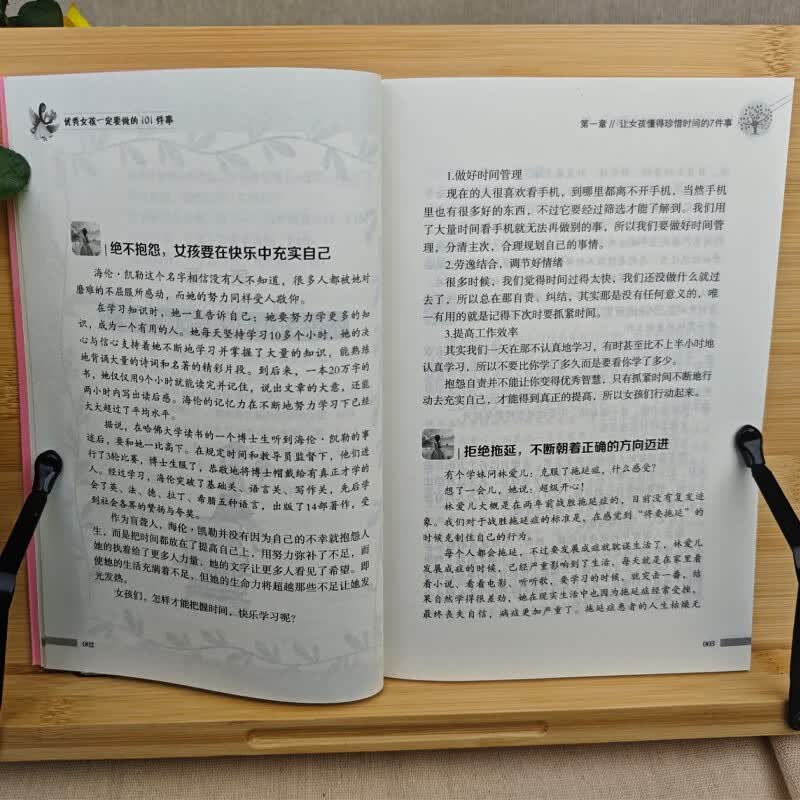 优秀女孩一定要做的101件事
绝不抱怨，女孩要在快乐中充实自己
海伦·凯勒这个名字相信没有人不知道，很多人都被她对
磨难的不屈服所感动，而她的努力同样受人敬仰。
在学习知识时，她一直告诉自己：她要努力学更多的知
识，成为一个有用的人。她每天坚持学习10多个小时，她的决
心与信心支持着她不断地学习并掌握了大量的知识，能熟练
地背诵大量的诗词和名著的精彩片段。到后来，一本20万字的
书，她仅仅用9个小时就能读完并记住，说出文章的大意，还能
两小时内写出读后感。海伦的记忆力在不断地努力学习下已经
大大超过了平均水平。
据说，在哈佛大学读书的一个博士生听到海伦·凯勒的事
迹后，要和她一比高下。在规定时间和教导员监督下，他们进
行了3轮比赛，博士生服了，恭敬地将博士帽戴给有真正才学的
人。经过学习，海伦突破了基础关、语言关、写作关，先后学
会了英、法、德、拉丁、希腊五种语言，出版了14部著作，受
到社会各界的赞扬与夸奖。
作为盲聋人，海伦·凯勒并没有因为自己的不幸就抱怨人
生，而是把时间都放在了提高自己上，用努力弥补了不足，而
她的执着给了更多人力量，她的文字让更多人看见了希望。即
使她的生活充满着不足，但她的生命力将超越那些不足让她发
光发热。
女孩们，怎样才能把握时间，快乐学习呢？
002
第一章 // 让女孩懂得珍惜时间的7件事
1.做好时间管理
现在的人很喜欢看手机，到哪里都离不开手机，当然手机
里也有很多好的东西，不过它要经过筛选才能了解到。我们用
了大量时间看手机就无法再做别的事，所以我们要做好时间管
理，分清主次，合理规划自己的事情。
2.劳逸结合，调节好情绪
很多时候，我们觉得时间过得太快，我们还没做什么就过
去了，所以总在那自责、纠结，其实那是没有任何意义的，唯
一有用的就是记得下次时要抓紧时间。
3.提高工作效率
其实我们一天在那不认真地学习，有时甚至比不上半小时地
认真学习，所以不要比你学了多久而是要看你学了多少。
抱怨自责并不能让你变得优秀智慧，只有抓紧时间不断地行
动去充实自己，才能得到真正的提高，所以女孩们行动起来。
拒绝拖延，不断朝着正确的方向迈进
有个学妹问林爱儿：克服了拖延症，什么感受？
想了一会儿，她说：超级开心！
林爱儿大概是在两年前战胜拖延症的，目前没有复发迹
象。我们对于战胜拖延症的标准是，在感觉到“将要拖延”的
时候克制住自己的行为。
每个人都会拖延，不过要发展成症就耽误生活了，林爱儿
发展成症的时候，已经严重影响到了生活，每天就是在家里看
看小说、看看电影、听听歌，要学习的时候，就突击一番，结
果自然学得很差劲，她在现实生活中也因为拖延症经常受挫，
最终丧失自信，病症更加严重了。拖延症患者的人生枯燥无
003